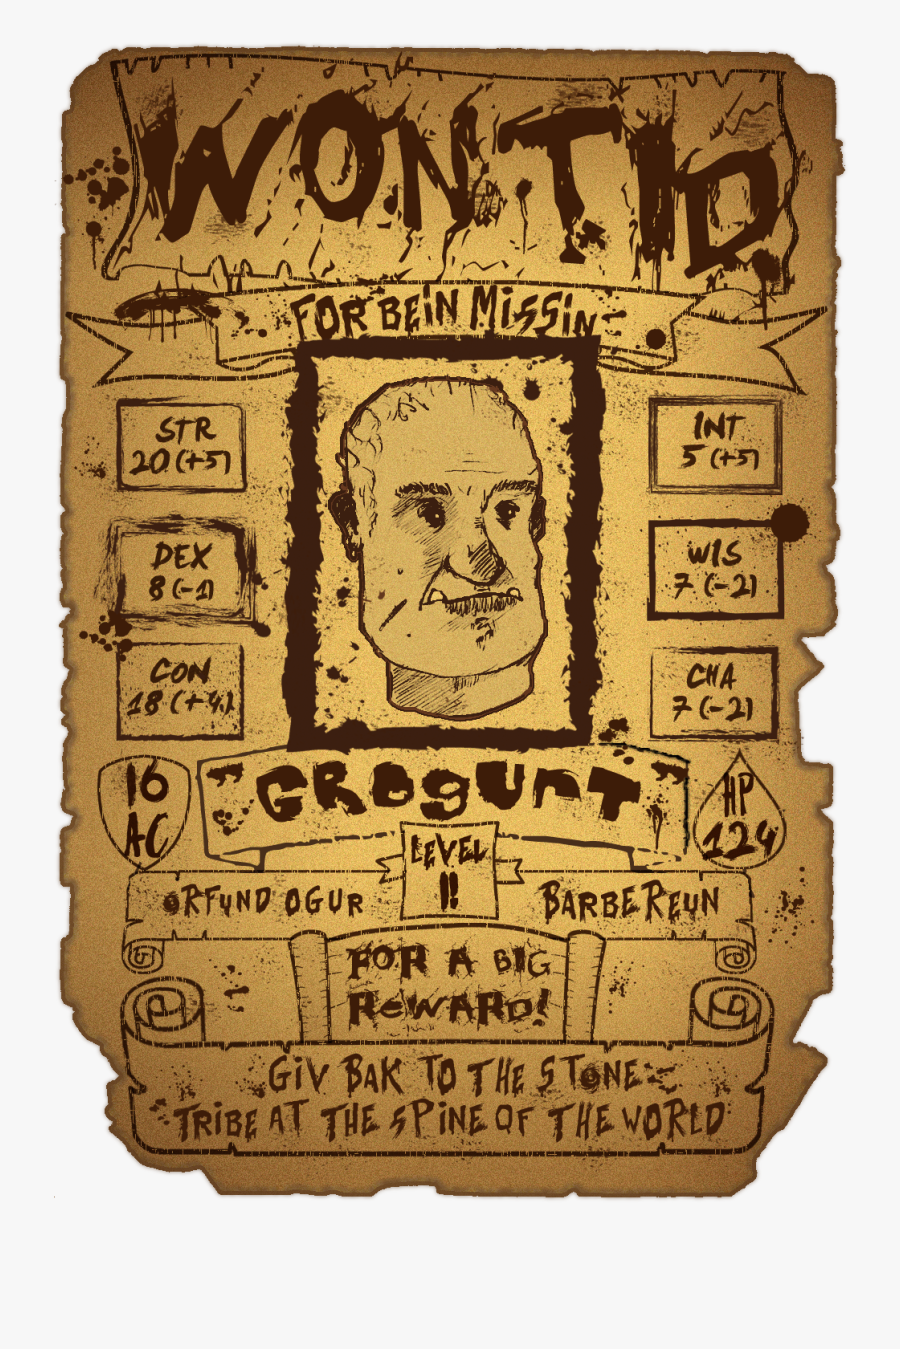 WONTID
FOR BEiN MiSSiN
STR
20 (+5)
INT
5 (+5)
DEX
8 (-1)
WIS
7 (-2)
CON
18 (+4)
CHA
7 (-2)
16
AC
GROgUnT
HP
124
LEVEL
11
ORFUND OGUR
BARBEREUN
FOR A BIG
REWARD!
GiV BAK TO THE STONE
TRiBE AT THE SPiNE OF THE WORLD